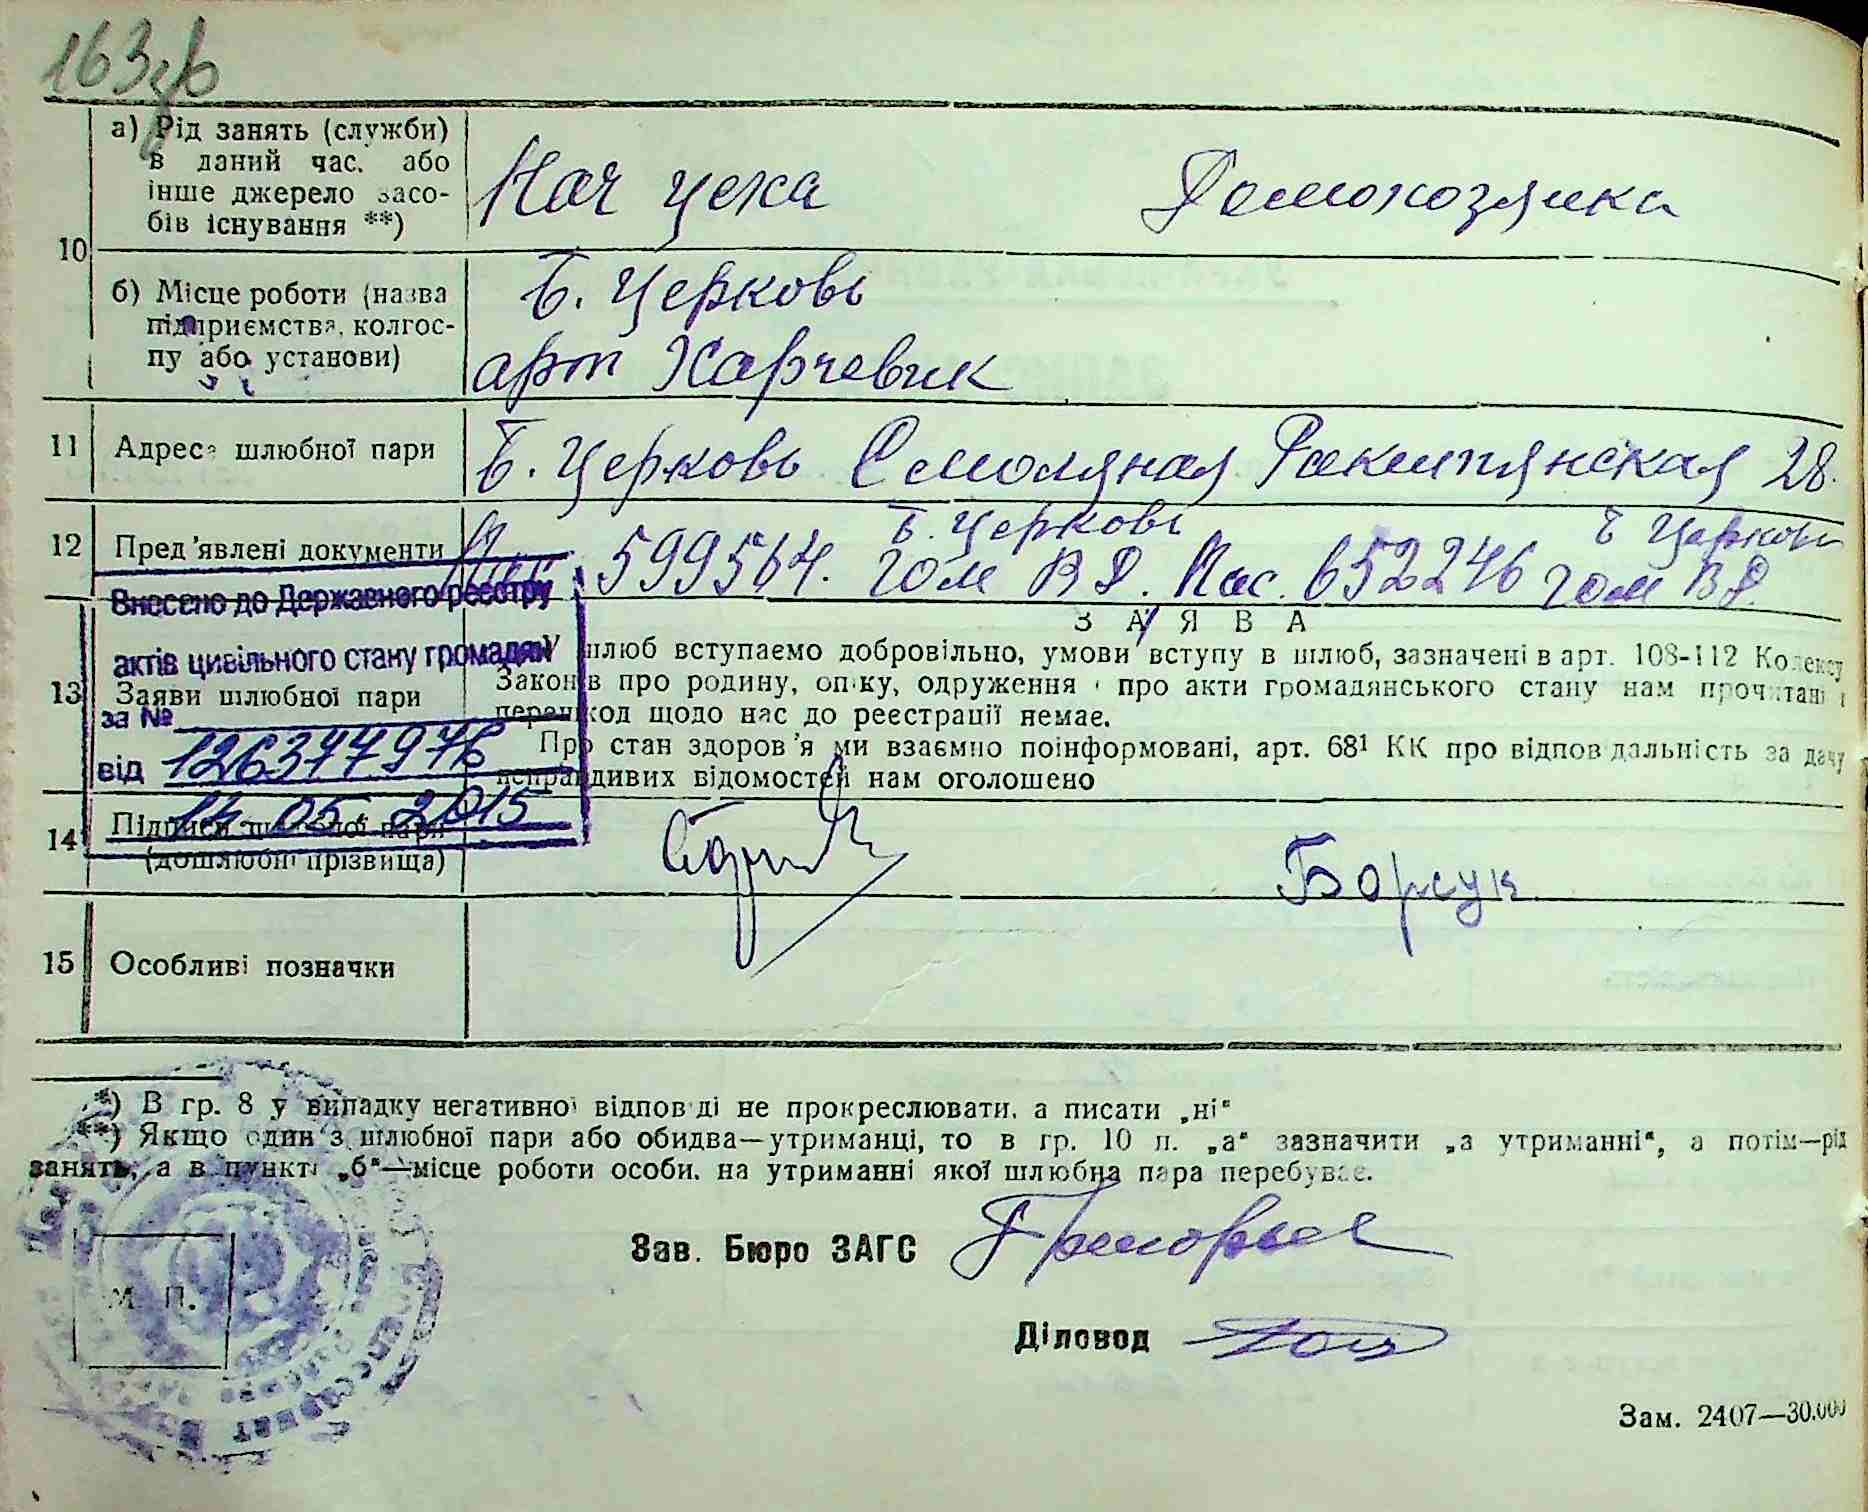 163зв
10
а) Рід занять (служби)
в даний час. або
інше джерело засо-
бів існування **)
Нач цеха
Домохозяика
б) Місце роботи (назва
підприємства, колгос-
пу або установи)
Б. Церковь
арт Харчевик
11
Адреса шлюбної пари
Б. Церковь Смоляная Ракитянская 28.
12
Пред'явлені документи
599564. Б. Церковь ГОМ В Д. Пас. 652246 Б Церков ГОМ В Д
Внесено до Державного реєстру
актів цивільного стану громадян
за №
від 126377976
14.05.2015
13
Заяви шлюбної пари
ЗАЯВА
У шлюб вступаємо добровільно, умови вступу в шлюб, зазначені в арт. 108-112 Кодексу
Законів про родину, опіку, одруження і про акти громадянського стану нам прочитані і
перешкод щодо нас до реєстрації немає.
Про стан здоров'я ми взаємно поінформовані, арт. 68¹ КК про відповідальність за дачу
неправдивих відомостей нам оголошено
14
Підписи шлюбної пари
(дошлюбні прізвища)
Борсук
15
Особливі позначки
*) В гр. 8 у випадку негативної відповіді не прокреслювати, а писати „ні“
**) Якщо один з шлюбної пари або обидва—утриманці, то в гр. 10 п. „а“ зазначити „а утриманні“, а потім—рід
занять, а в пункті „б“—місце роботи особи. на утриманні якої шлюбна пара перебуває.
М. П.
Зав. Бюро ЗАГС
Діловод
Зам. 2407—30.000